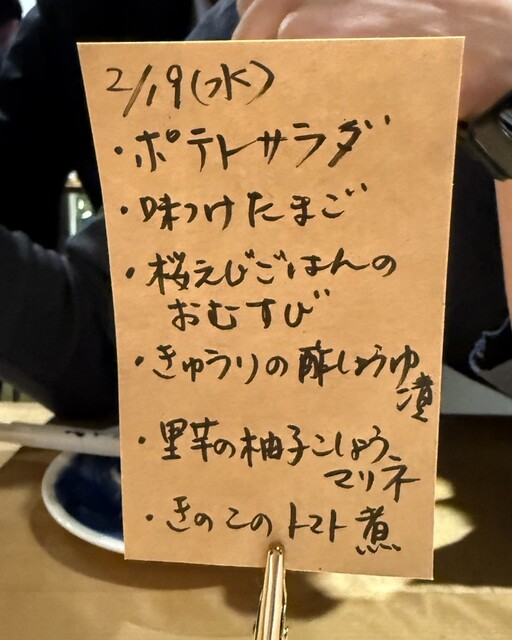 2/19(水)
・ポテトサラダ
・味つけたまご
・桜えびごはんの
おむすび
・きゅうりの酢しょうゆ
漬
・里芋の柚子こしょう
マリネ
・きのこのトマト煮